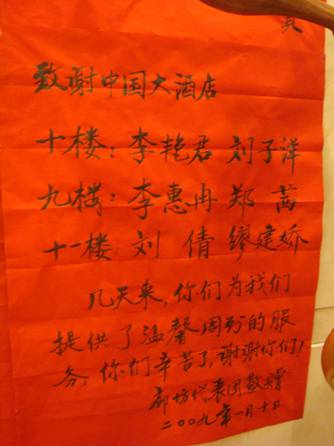 致谢中国大酒店
十楼：李艳君 刘子洋
九楼：李惠冉 郑 茜
十一楼：刘 倩 缪建娇
几天来，你们为我们
提供了温馨周到的服
务，你们辛苦了，谢谢你们！
廊坊代表团敬赠
二〇〇九年一月十日